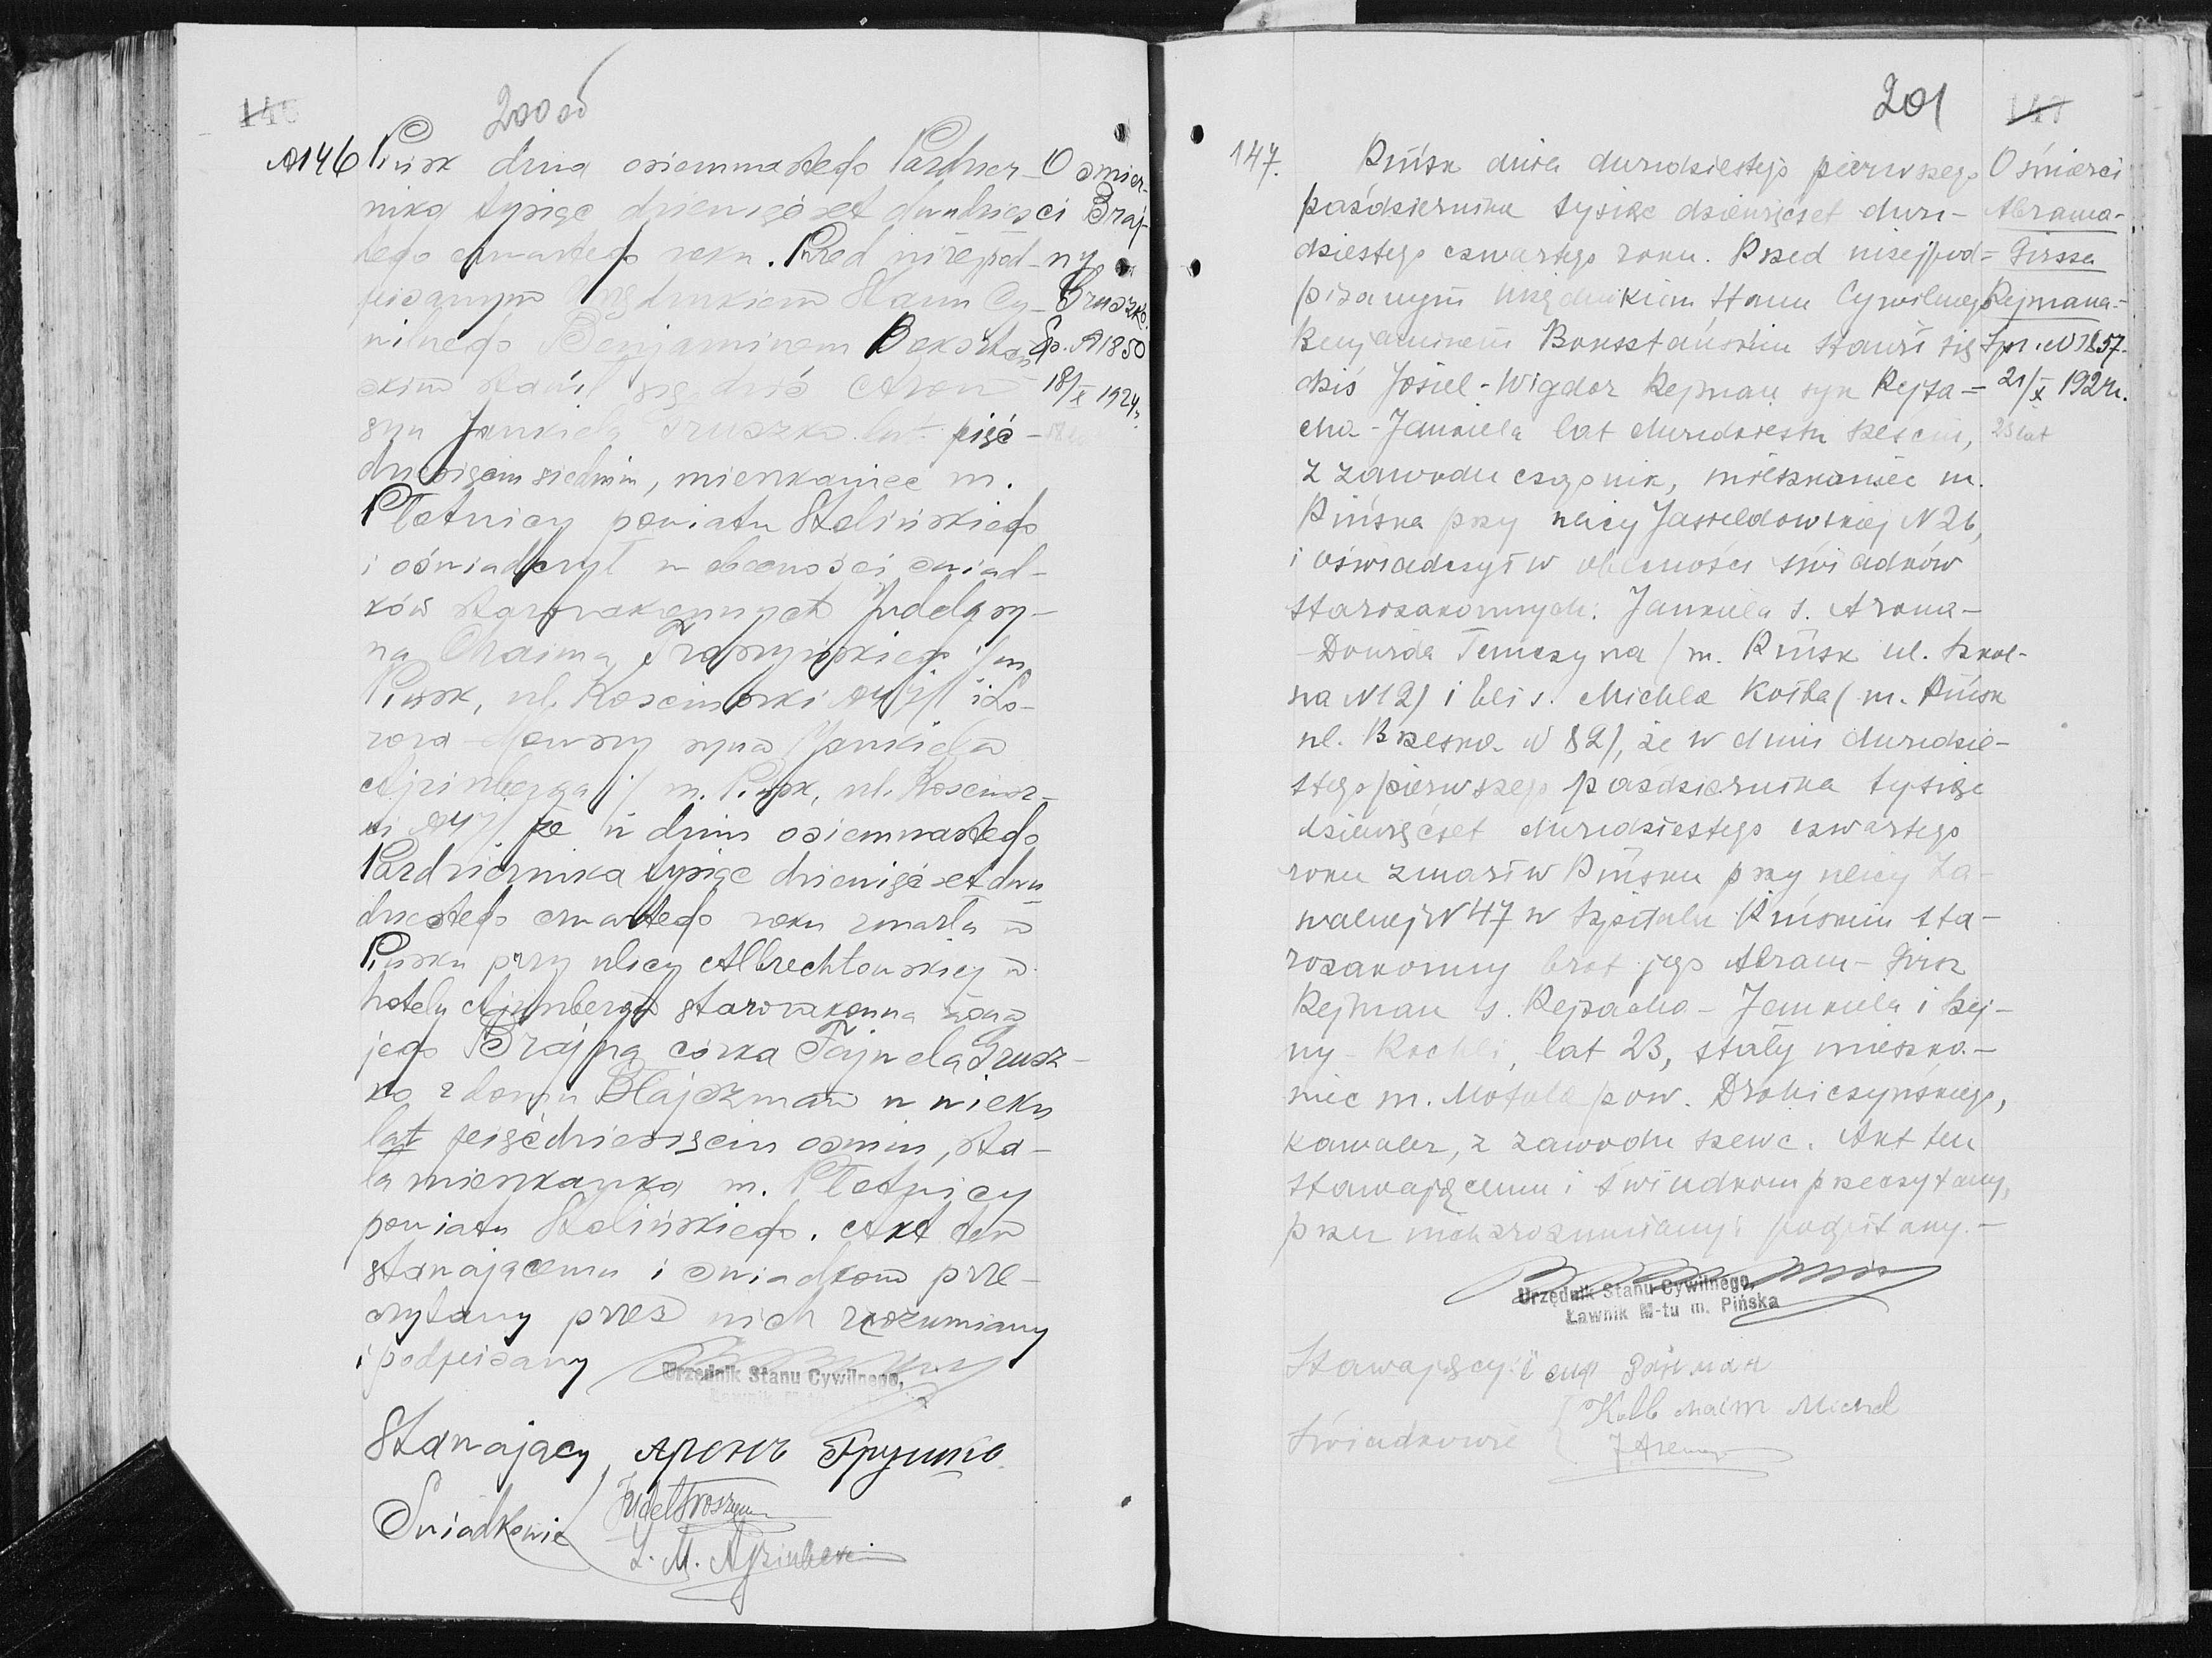 146
200 od
№146
Pińsk dnia osiemnastego Paździer-
nika tysiąc dziewięćset dwudzies-
tego czwartego roku. Przed niżej pod-
pisanym Urzędnikiem Stanu Cy-
wilnego Benjaminem Boksztań-
skim stawił się dziś Aron
syn Jankiela Gruszko lat pięć-
dziesięciu siedmiu, mieszkaniec m.
Płotnicy powiatu Stolińskiego
i oświadczył w obecności świad-
ków starozakonnych Judela sy-
na Chaima Troszyńskiego /m.
Pińsk, ul. Kościuszki №7/ i Lo-
zora-Mowszy syna Jankiela
Ajzinberga /m. Pińsk, ul. Kościusz-
ki №7/ że w dniu osiemnastego
Października tysiąc dziewięćset dwu-
dziestego czwartego roku zmarła w
Pińsku przy ulicy Albrechtowskiej w
hotelu Ajzinberga starozakonna żona
jego Brajna córka Fajwela Grusz-
ko z domu Blajczman w wieku
lat pięćdziesięciu ośmiu, sta-
ła mieszkanka m. Płotnicy
powiatu Stolińskiego. Akt ten
stawającemu i świadkom prze-
czytany przez nich zrozumiany
i podpisany
Urzędnik Stanu Cywilnego,
Stawający Аронъ Грушко
Świadkowie Judel Troszyn
L. M. Ajzinberg
O śmier-
ci Braj-
ny
Gruszko.
Sp. №1850
18/X 1924 r.
201
147
147.
Pińsk dnia dwudziestego pierwszego
października tysiąc dziewięćset dwu-
dziestego czwartego roku. Przed niżej pod-
pisanym urzędnikiem Stanu Cywilnego
Benjaminem Boksztańskim stawił się
dziś Josiel-Wigdor Rejman syn Rejza-
cha-Jankiela lat dwudziestu sześciu,
z zawodu czapnik, mieszkaniec m.
Pińska przy ulicy Jasieldowskiej N 26,
i oświadczył w obecności świadków
starozakonnych: Jankiela s. Arona-
-Dowida Temczyna /m. Pińsk ul. Szkol-
na N 12/ i Eli s. Michla Kołba (m. Pińsk
ul. Brzeska N 82/, że w dniu dwudzie-
stego pierwszego października tysiąc
dziewięćset dwudziestego czwartego
roku zmarł w Pińsku przy ulicy Za-
walnej N 47 w Szpitalu Pińskim sta-
rozakonny brat jego Abram-Girsz
Rejman s. Rejzacha-Jankiela i Szej-
ny-Rochli, lat 23, stały mieszka-
niec m. Motola pow. Drohiczyńskiego,
kawaler, z zawodu szewc. Akt ten
stawającemu i świadkom przeczytany,
przez nich zrozumiany i podpisany.-
Urzędnik Stanu Cywilnego,
Ławnik M-tu m. Pińska
Stawający:
Kolb Michel
Świadkowie
O śmierci
Abrama-
Girsza
Rejmana-
Spr. N 1857-
21/X 192 r.
23 lat